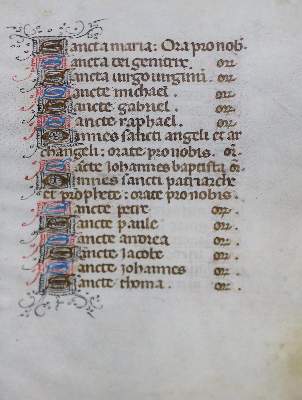 Sancta maria: Ora pro nob.
Sancta dei genitrix. or.
Sancta uirgo uirginū. or.
Sancte michael. or.
Sancte gabriel. or.
Sancte raphael. or.
Omnes sancti angeli et ar
changeli: orate pro nobis. or.
Sācte Iohannes baptista. or.
Omnes sancti patriarche
et prophete: orate pro nobis.
Sancte petre or.
Sancte paule or.
Sancte andrea or.
Sancte Iacobe or.
Sancte Iohannes or.
Sancte thoma. or.